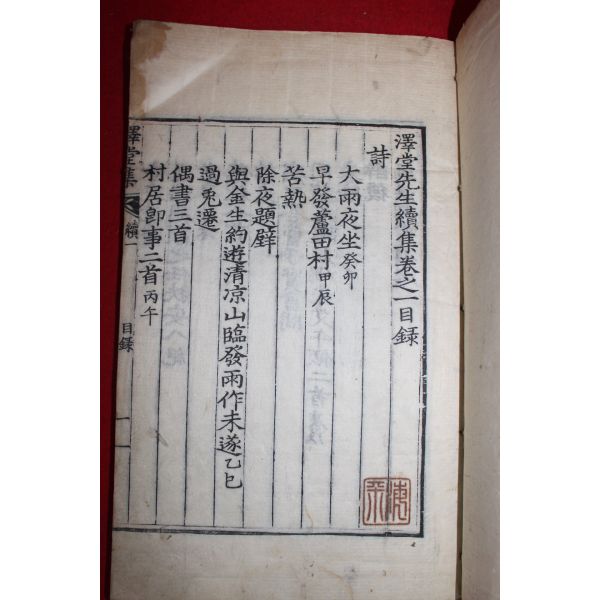 澤堂先生續集卷之一目錄
詩
大雨夜坐 癸卯
早發蘆田村 甲辰
苦熱
除夜題壁
與金生約遊清凉山臨發雨作未遂 乙巳
過兎遷
偶書三首
村居卽事二首 丙午
澤堂集 續一 目錄 一